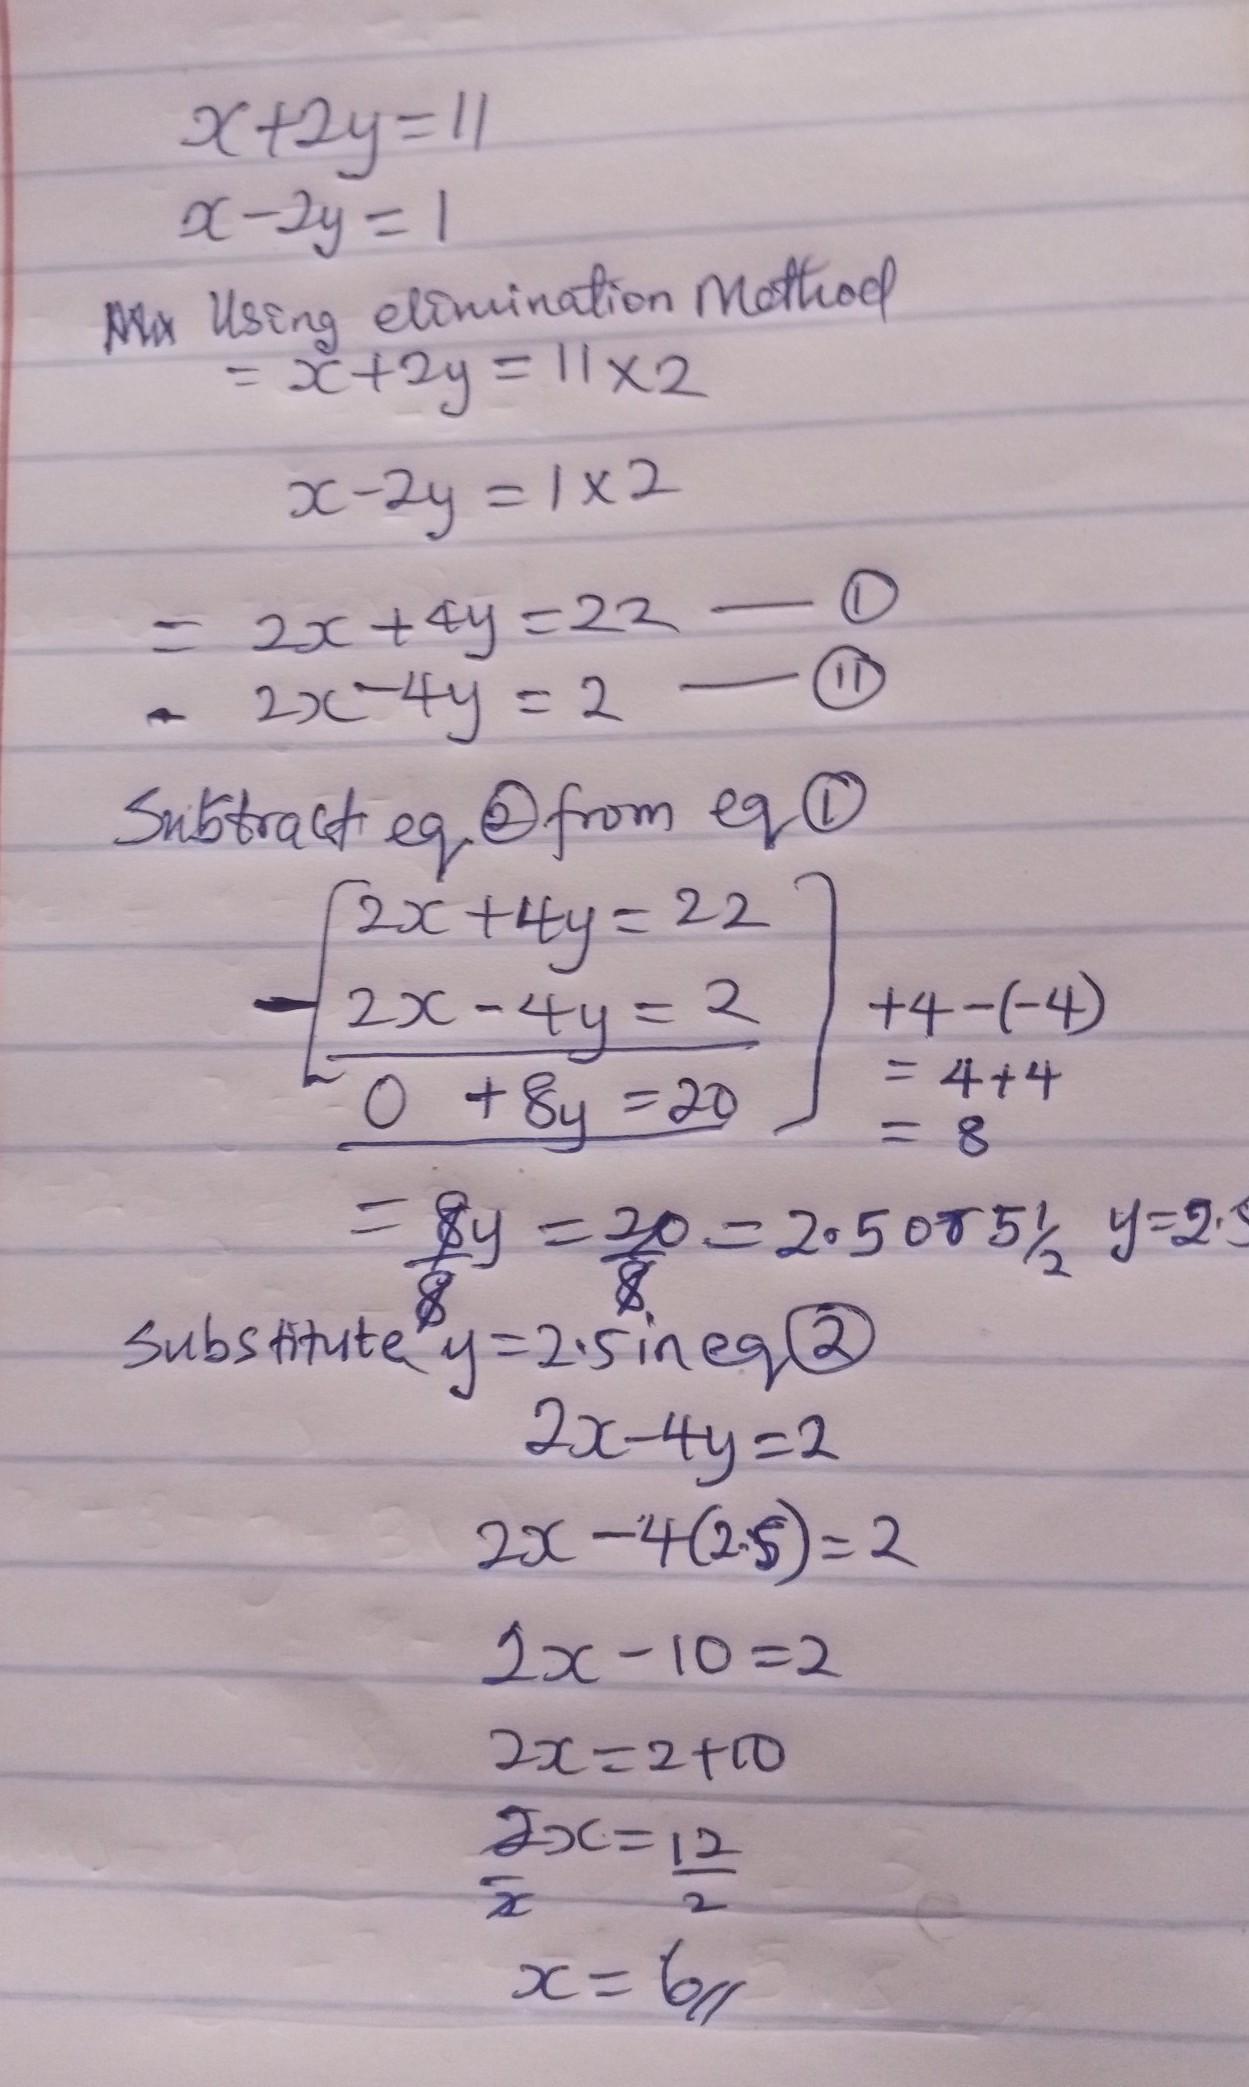 x+2y=11
x-2y=1
Using elimination Method
= x+2y=11×2
x-2y=1×2
= 2x+4y=22 — ①
- 2x-4y=2 — ⑪
Subtract eq ② from eq ①
2x+4y=22
- 2x-4y=2 +4-(-4)
= 4+4
0 +8y=20
= 8
= 8y/8 = 20/8 = 2.5 or 5/2 y=2.5
Substitute y=2.5 in eq ②
2x-4y=2
2x-4(2.5)=2
2x-10=2
2x=2+10
2x/2=12/2
x=6//